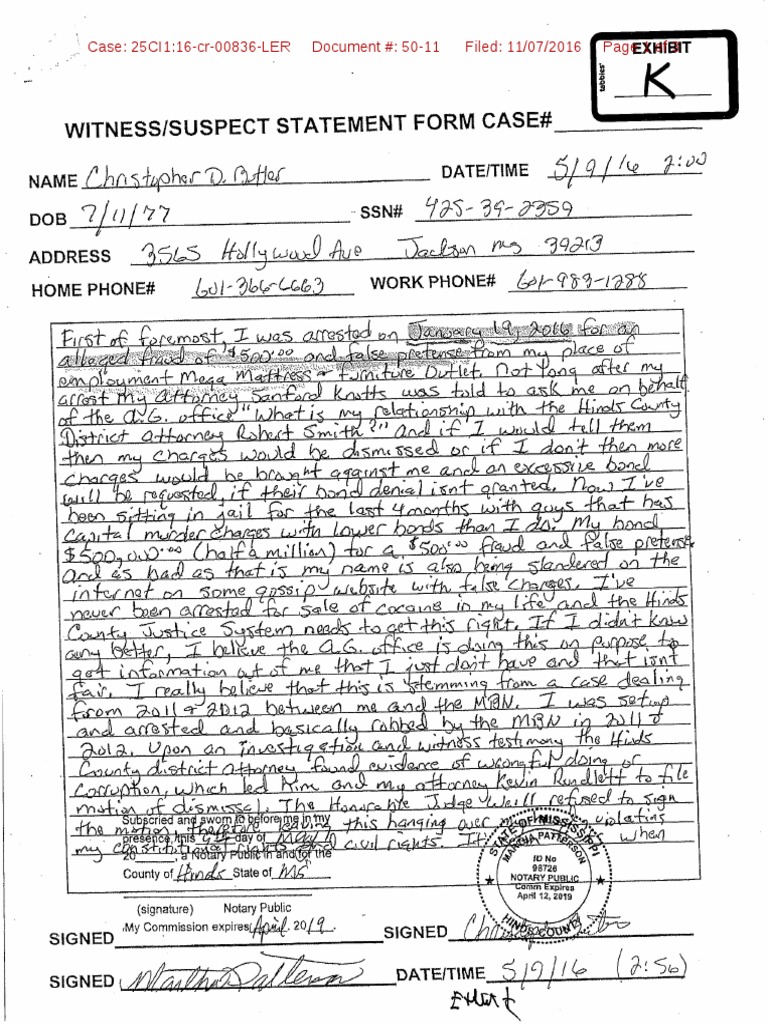 Case: 25CI1:16-cr-00836-LER Document #: 50-11 Filed: 11/07/2016 Page
EXHIBIT
tabbies'
K
WITNESS/SUSPECT STATEMENT FORM CASE#
NAME Christopher D. Butler DATE/TIME 5/9/16 2:00
DOB 7/11/77 SSN# 425-39-2359
ADDRESS 3565 Hollywood Ave Jackson ms 39213
HOME PHONE# 601-366-6663 WORK PHONE# 601-983-1288
First of foremost, I was arrested on January 19, 2016 for an
alleged fraud of $500.00 and false pretense from my place of
employment Mega Mattress & Furniture Outlet. Not long after my
arrest my attorney Sanford Knotts was told to ask me on behalf
of the A.G. office "What is my relationship with the Hinds County
District attorney Robert Smith?" and if I would tell them
then my charges would be dismissed or if I don't then more
charges would be brought against me and an excessive bond
will be requested, if their bond denial isnt granted. Now I've
been sitting in jail for the last 4months with guys that has
capital murder charges with lower bonds than I do. My bond
$500,000.00 (half a million) for a $500.00 fraud and false pretense
and as bad as that is my name is also being slandered on the
internet on some gossip website with false charges. I've
never been arrested for sale of cocaine in my life and the Hinds
County Justice System needs to get this right. If I didn't know
any better, I believe the A.G. office is doing this on purpose to
get information out of me that I just don't have and that isn't
fair. I really believe that this is stemming from a case dealing
from 2011 & 2012 between me and the MBN. I was setup
and arrested and basically robbed by the MBN in 2011 &
2012. Upon an investigation and witness testimony the Hinds
County district attorney found evidence of wrongful doing or
corruption, which led him and my attorney Kevin Rundlett to file
motion of dismissal. The Honorable Judge Weill refused to sign
the motion therefore leaving this hanging over violating
my constitutional rights and civil rights. when
Subscribed and sworn to before me in my
presence, this 9th day of May
20 , a Notary Public in and for the
County of Hinds State of MS
(signature) Notary Public
My Commission expires April 2019
STATE OF MISSISSIPPI
MARTHA PATTERSON
ID No
98726
NOTARY PUBLIC
Comm Expires
April 12, 2019
HINDS COUNTY
SIGNED
SIGNED
SIGNED Martha Patterson DATE/TIME 5/9/16 (2:56)